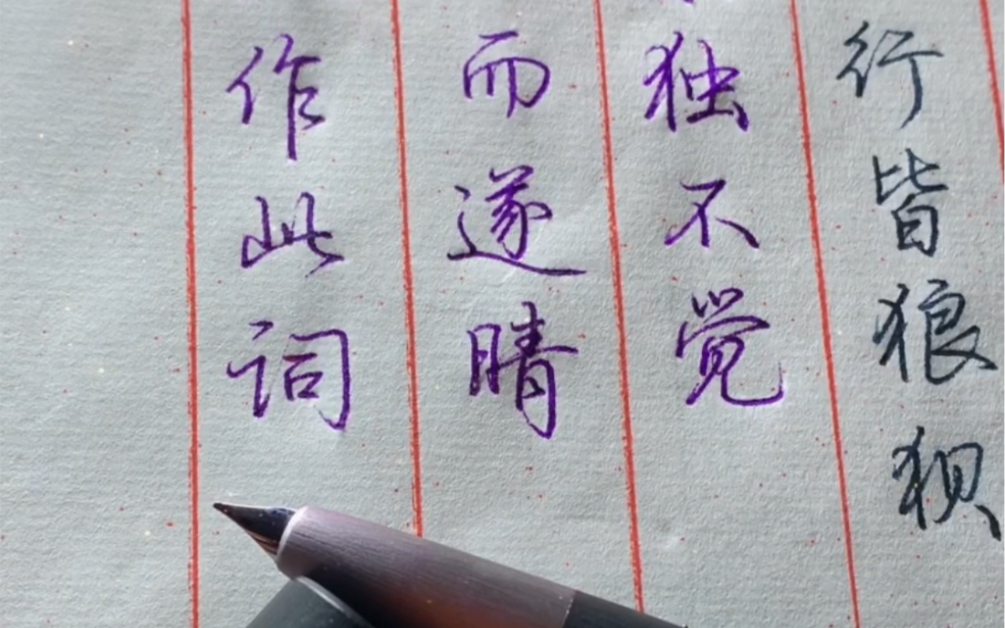 行皆狼狈
独不觉
而遂晴
作此词